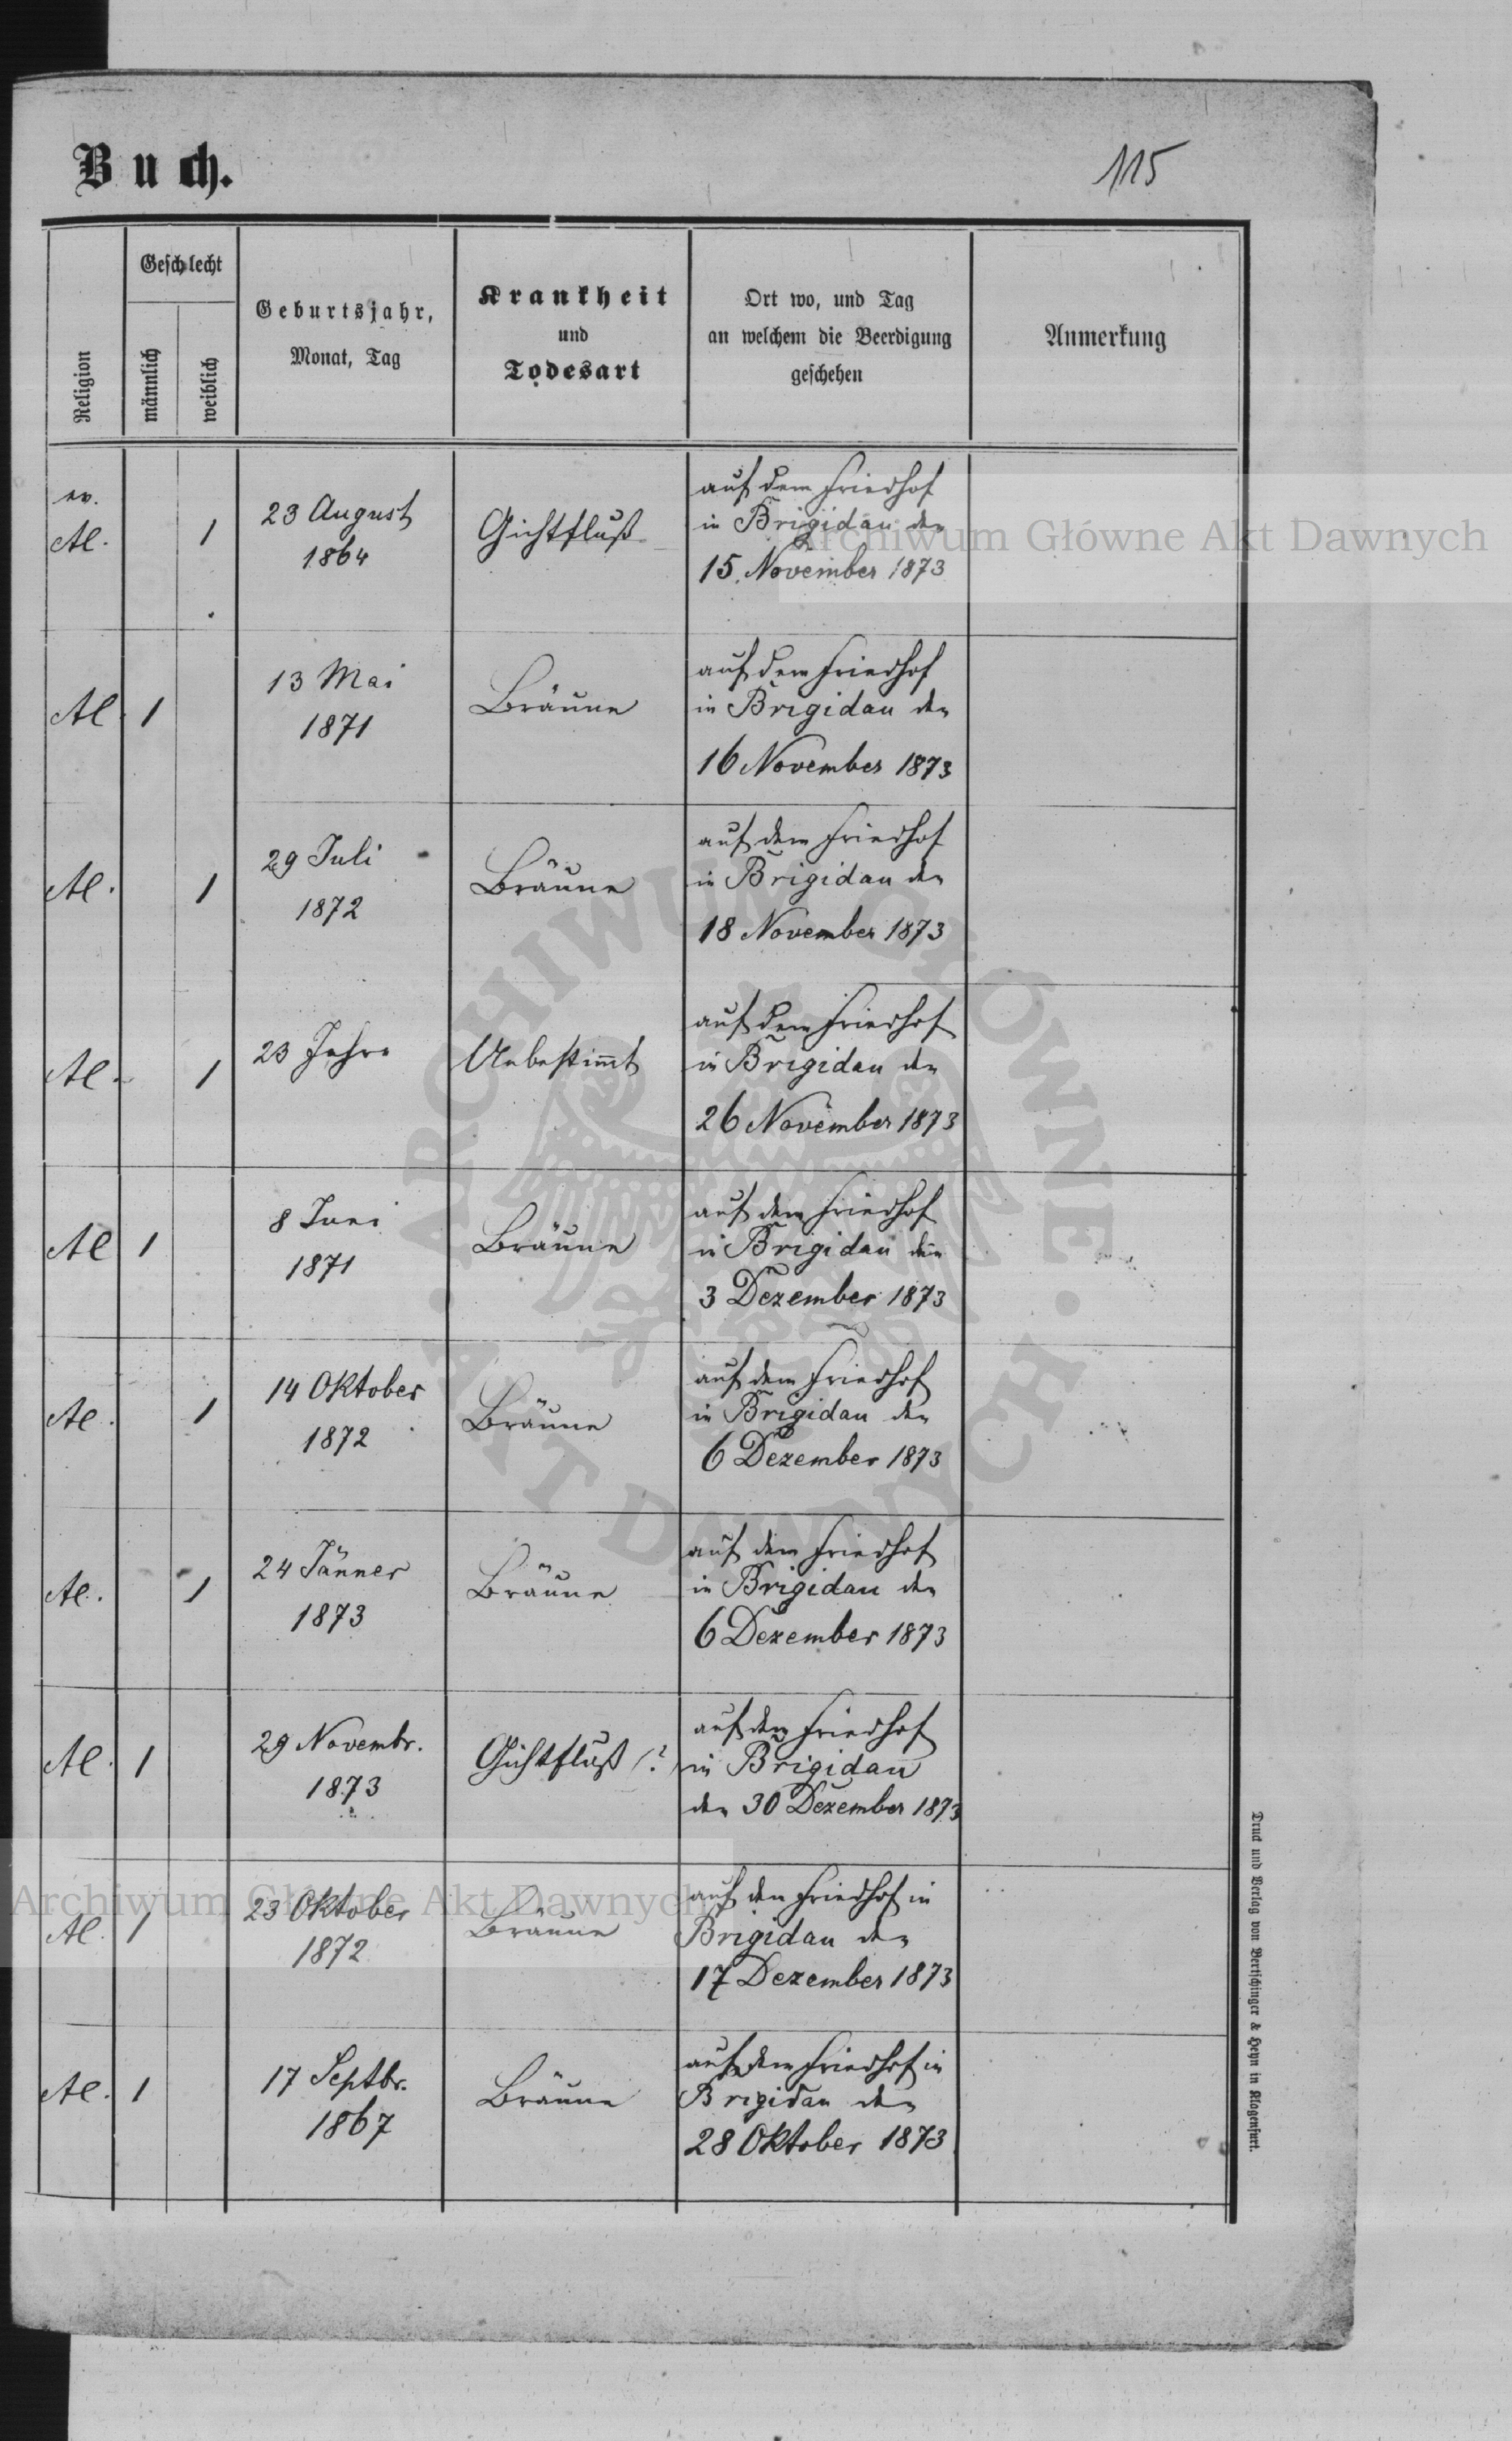 Buch.
115
Religion
Geschlecht
männlich
weiblich
Geburtsjahr,
Monat, Tag
Krankheit
und
Todesart
Ort wo, und Tag
an welchem die Beerdigung
geschehen
Anmerkung
ev.
Al. 1
23 August
1864
Gichtfluß
auf dem Friedhof
in Brigidau den
15. November 1873
Al. 1
13 Mai
1871
Bräune
auf dem Friedhof
in Brigidau den
16 November 1873
Al. 1
29 Juli
1872
Bräune
auf dem Friedhof
in Brigidau den
18 November 1873
Al. 1
23 Jahre
Unbestimt
auf dem Friedhof
in Brigidau den
26 November 1873
Al 1
8 Juni
1871
Bräune
auf dem Friedhof
in Brigidau den
3 Dezember 1873
Al. 1
14 Oktober
1872
Bräune
auf dem Friedhof
in Brigidau den
6 Dezember 1873
Al. 1
24 Jänner
1873
Bräune
auf dem Friedhof
in Brigidau den
6 Dezember 1873
Al. 1
29 Novembr.
1873
Gichtfluß (?)
auf dem Friedhof
in Brigidau
den 30 Dezember 1873
Al. 1
23 Oktober
1872
Bräune
auf dem Friedhof in
Brigidau den
17 Dezember 1873
Al. 1
17 Septbr.
1867
Bräune
auf dem Friedhof in
Brigidau den
28 Oktober 1873
Druck und Verlag von Bertschinger & Heyn in Klagenfurt.
Archiwum Główne Akt Dawnych
Archiwum Główne Akt Dawnych
ARCHIWUM GŁÓWNE · AKT DAWNYCH ·